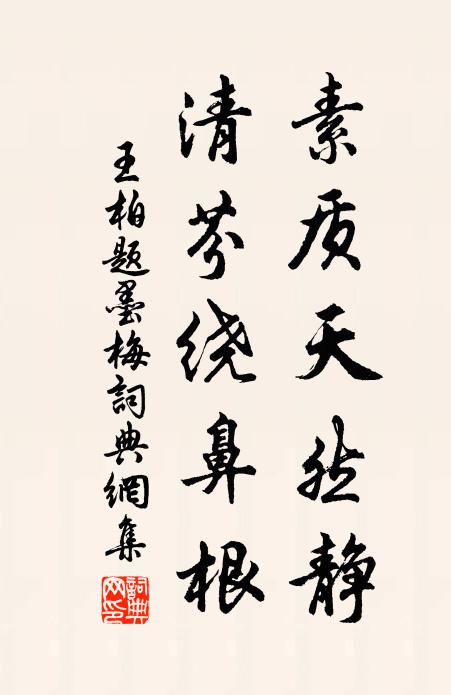 素质天然静
清芬绕鼻根
王柏题墨梅詞典網集
詞典网印